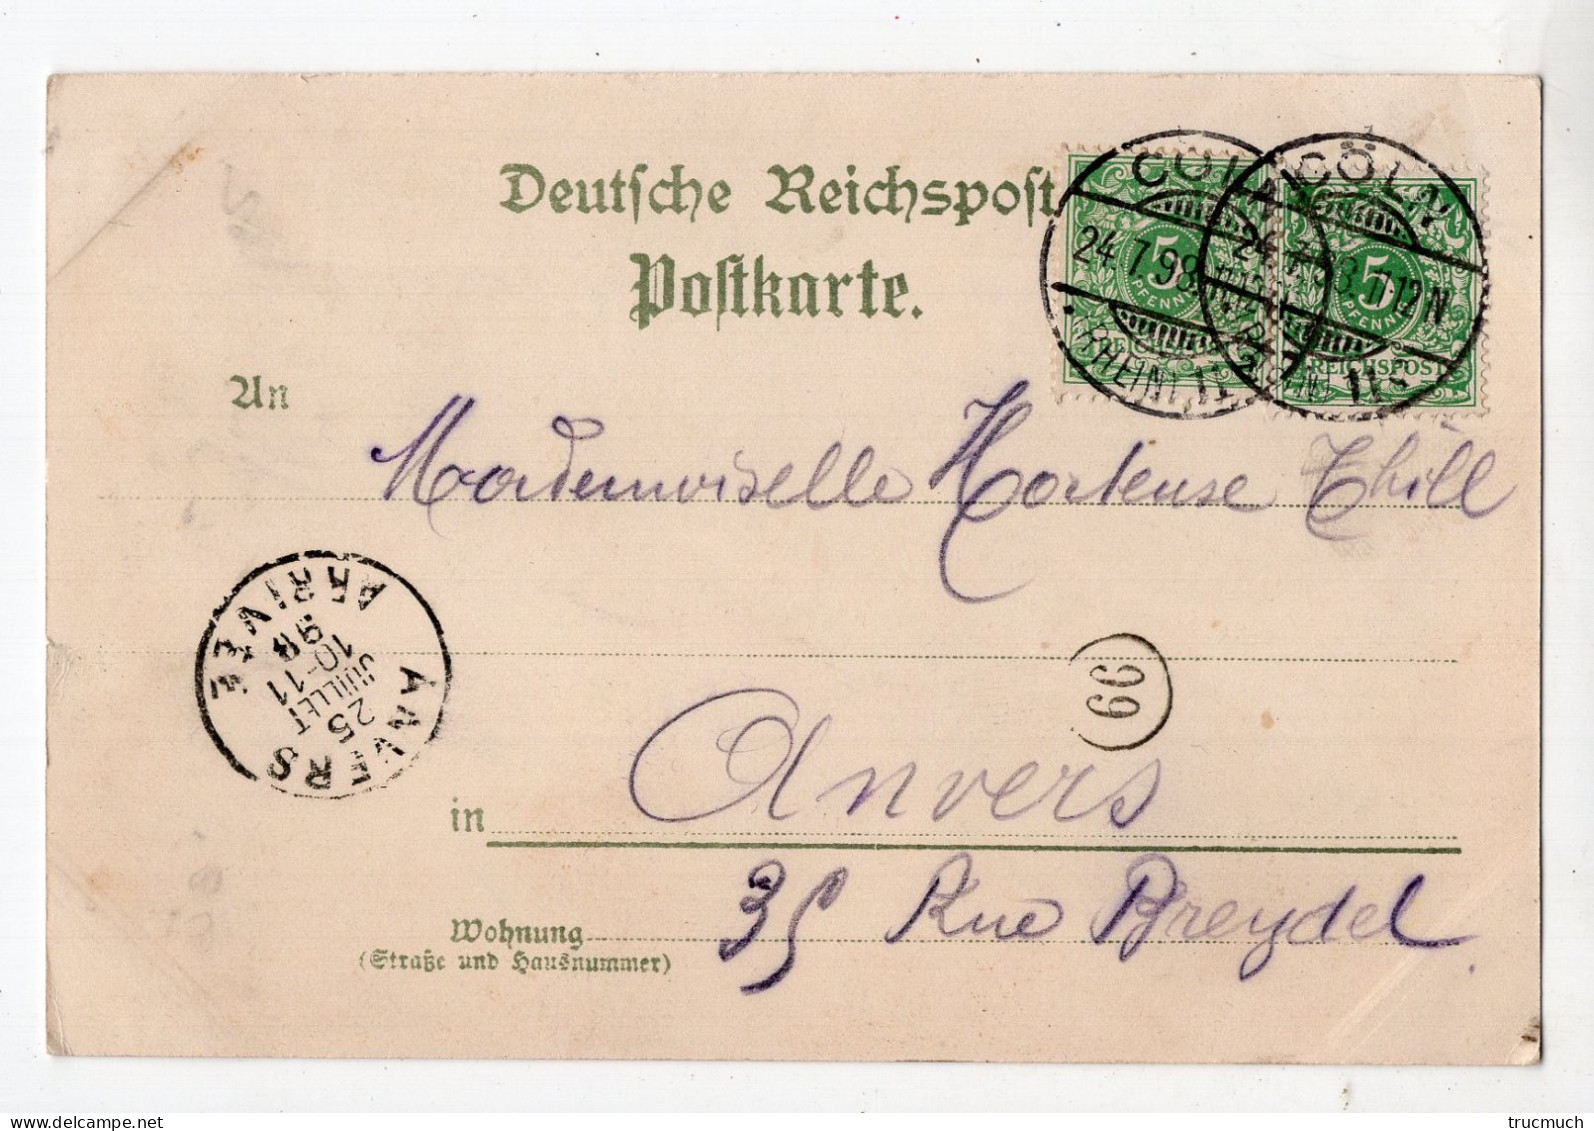 Deutsche Reichspost
Postkarte.
CÖLN
24.7.98.11-12N.
(RHEIN) 11
CÖLN
24.7.98.11-12N.
(RHEIN) 11
5
PFENNIG
REICHSPOST
5
PFENNIG
REICHSPOST
An
Mademoiselle Hortense Thill
ANVERS
25
JUILLET
10-11
98
ARRIVÉE
66
in Anvers
Wohnung 35 Rue Breydel.
(Straße und Hausnummer)
trucmuch